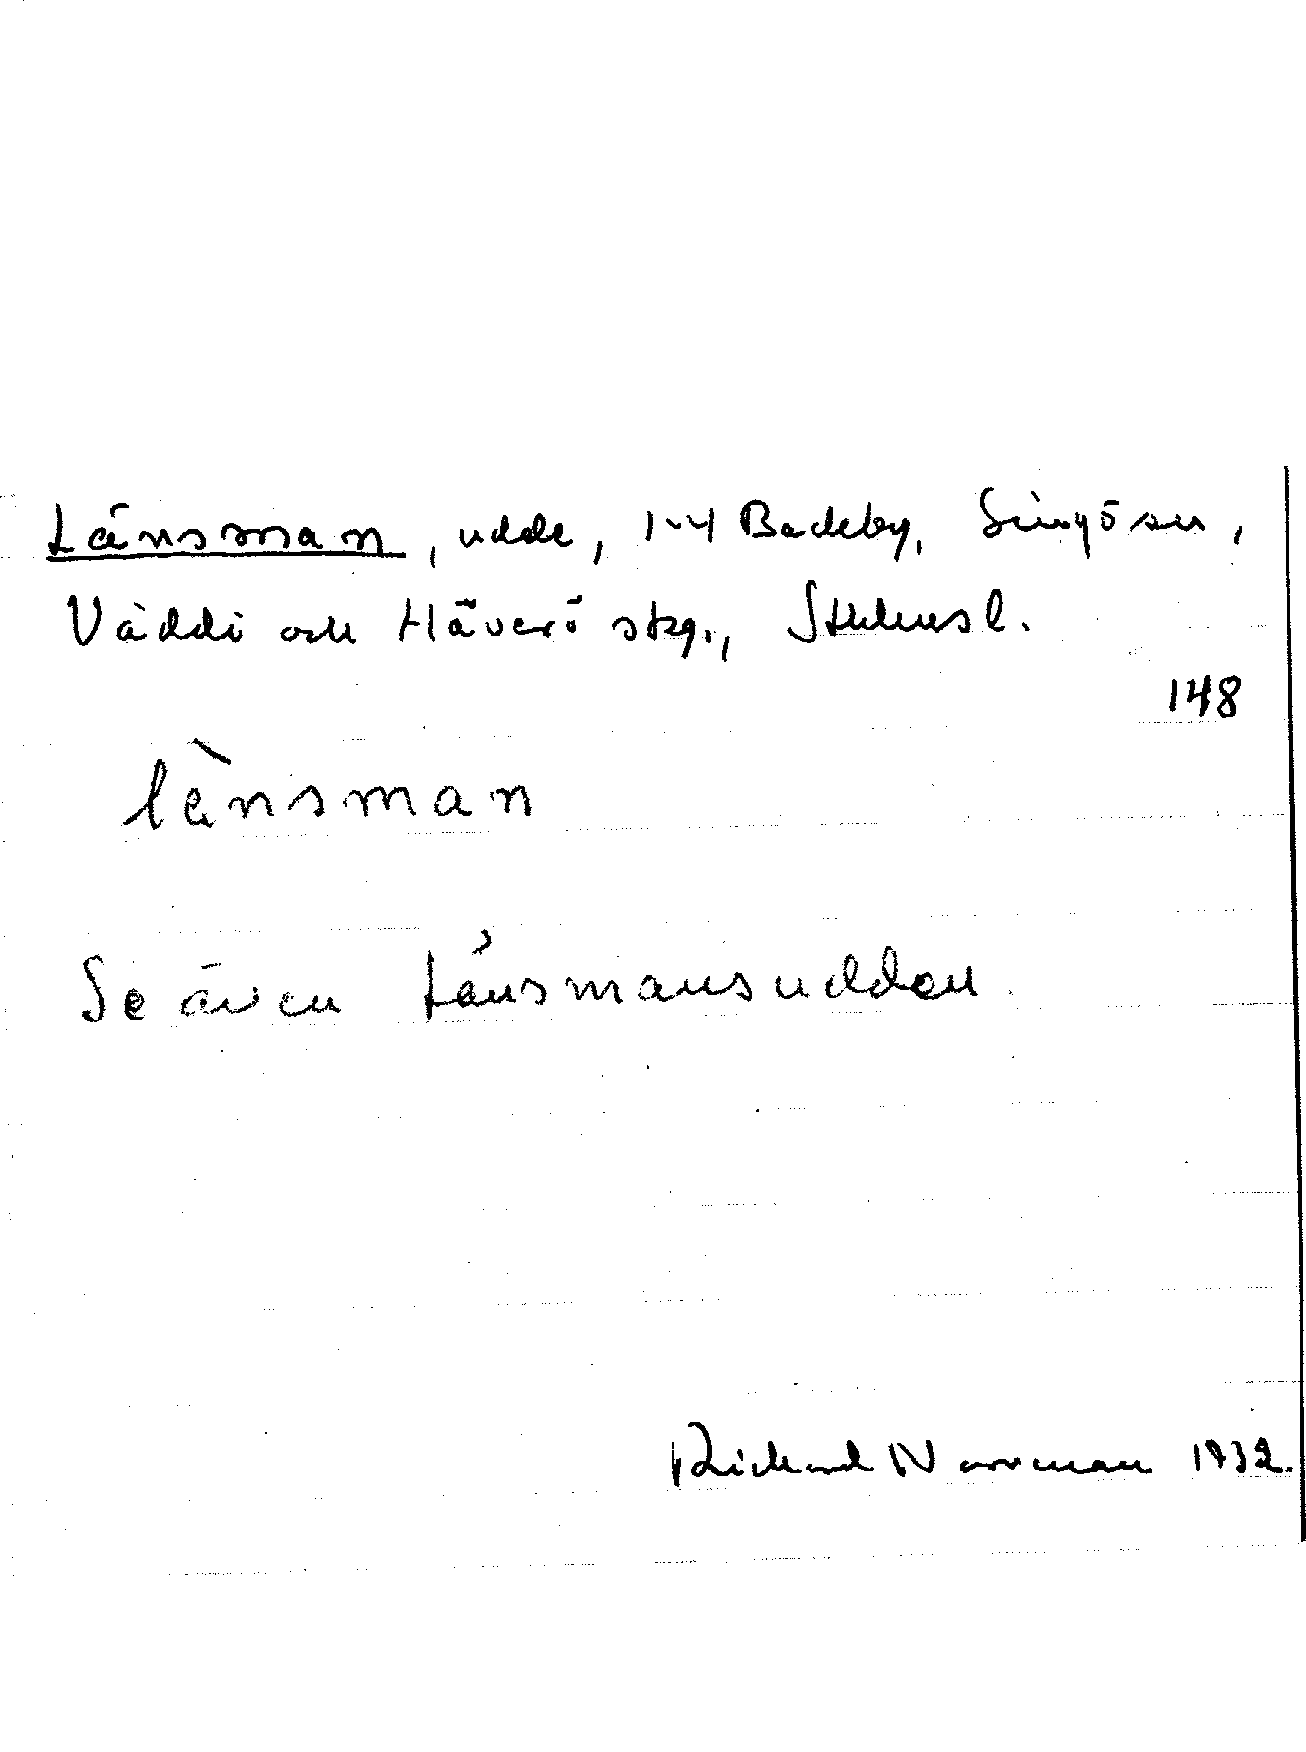 Länsman, udde, 1-4 Backby, Singö sn,
Väddö och Häverö skg., Sthlmsl.
148
lènsman
Se även Länsmansudden
Rickard Norrman 1932.